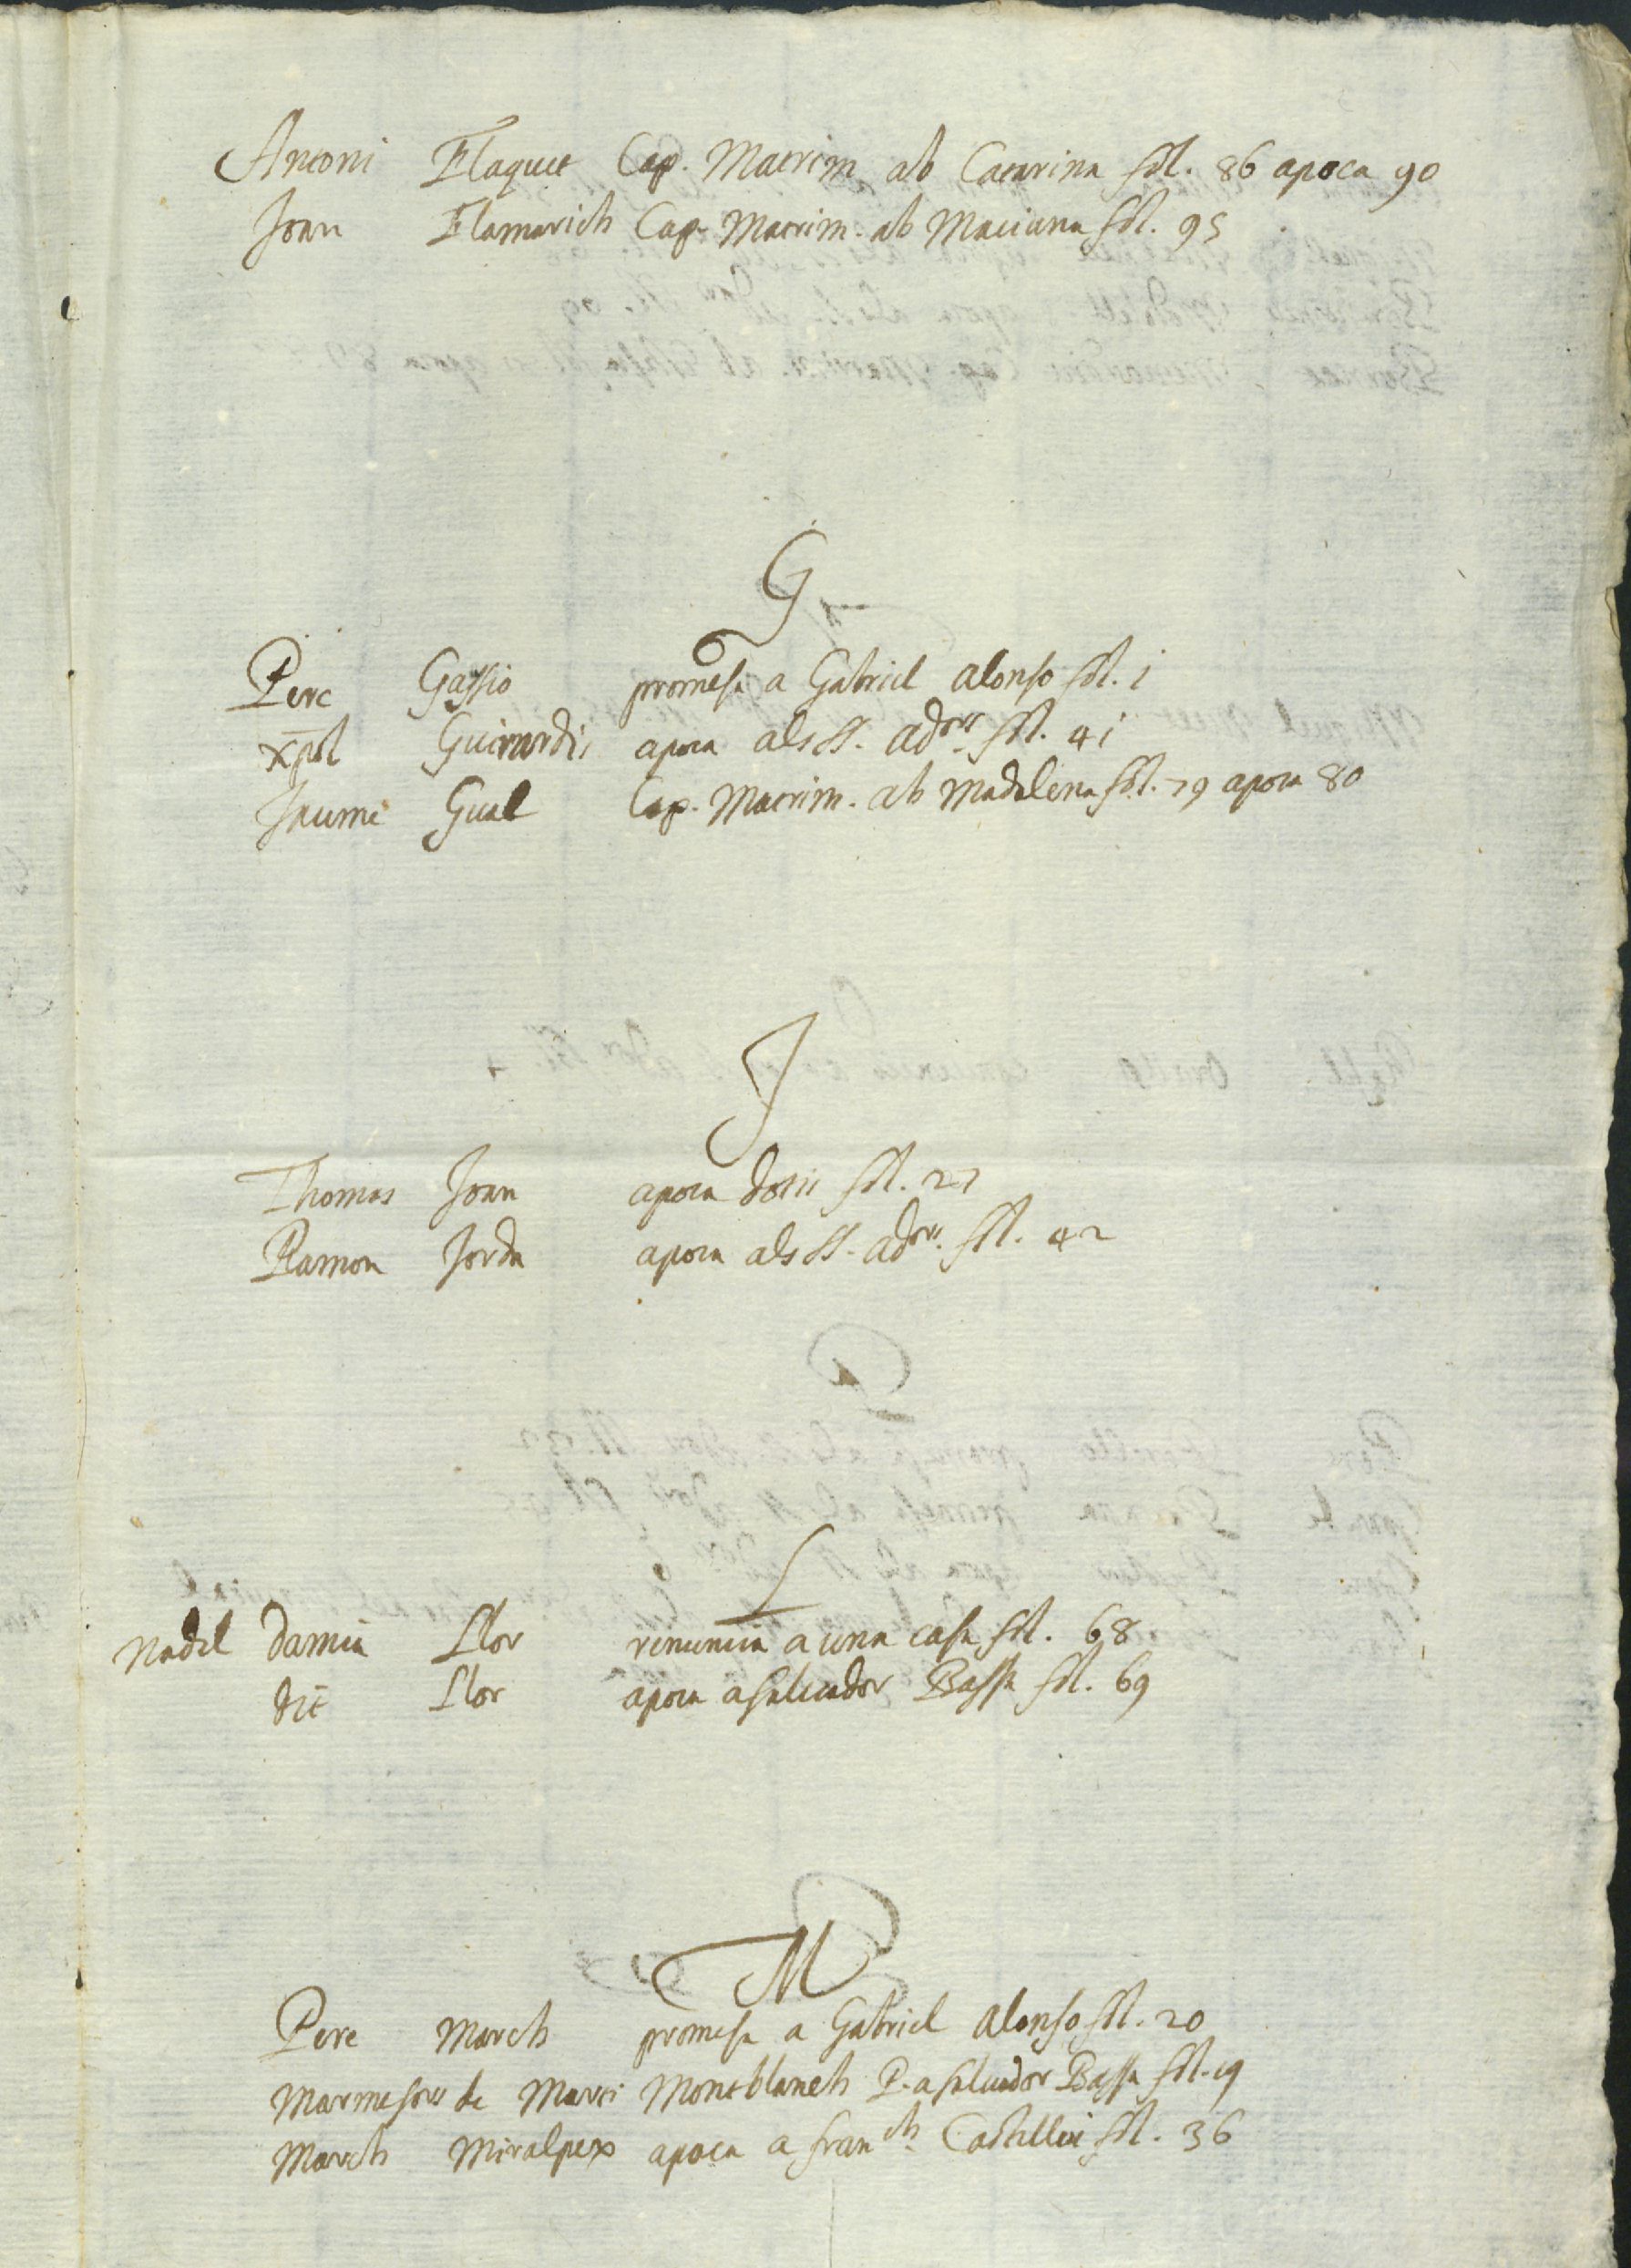 Antoni Flaquet Cap. Matrim ab Catarina fol. 86 apoca 90
Joan Flamarich Cap. Matrim. ab Maciana fol. 95
G
Pere Gassio promesa a Gabriel Alonso fol. 1
Xpol Guirardis apoca als SS. Adors fol. 41
Jaume Gual Cap. Matrim. ab Madalena fol. 79 apoca 80
J
Thomas Joan apoca dotis fol. 27
Ramon Jorda apoca als SS. Adors. fol. 42
L
Nadal Damia Llor renuncia a una casa fol. 68
dit Llor apoca a salvador Bassa fol. 69
M
Pere March promesa a Gabriel Alonso fol. 20
Marmesors de Marti Montblanch P. a salvador Bassa fol. 19
March Miralpex apoca a franch. Castellvi fol. 36